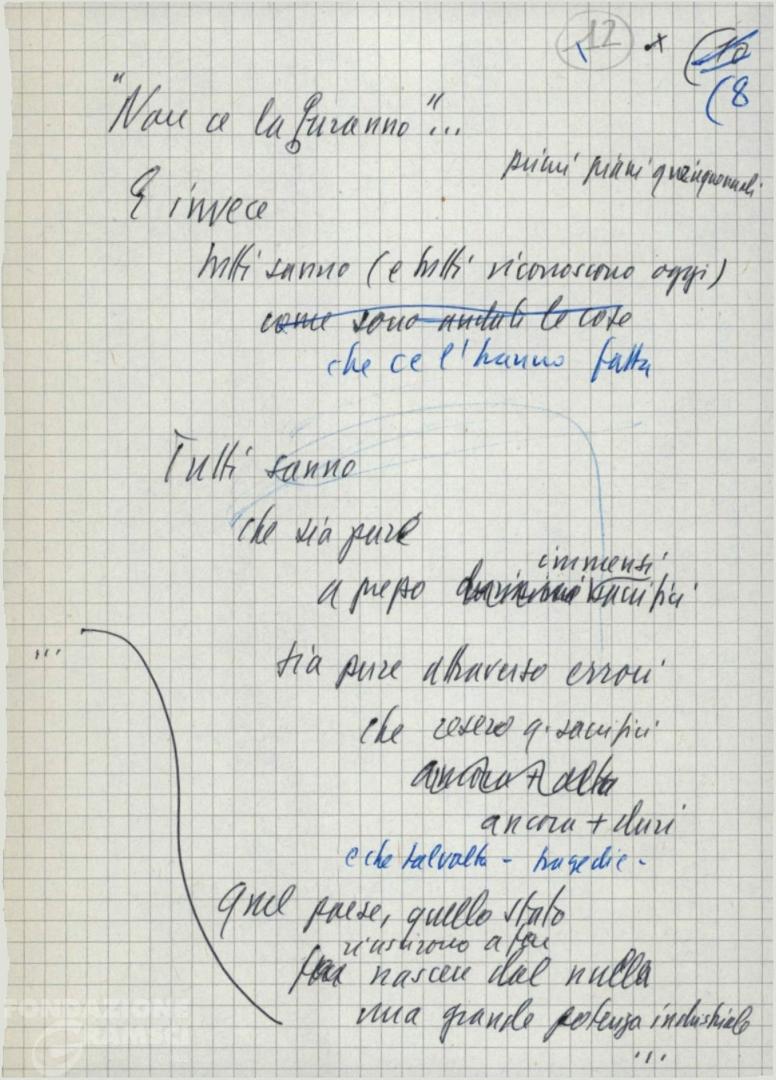 12 x (10
(8
"Non ce la faranno"...
primi piani quinquennali
E invece
tutti sanno (e tutti riconoscono oggi)
come sono andate le cose
che ce l'hanno fatta
Tutti sanno
che sia pure
immensi
a prezzo sacrifici
... sia pure attraverso errori
che resero q. sacrifici
ancora +
ancora + duri
e che talvolta - tragedie -
quel paese, quello stato
riuscirono a far
far nascere dal nulla
una grande potenza industriale
...
FONDAZIONE
GRAMSCI